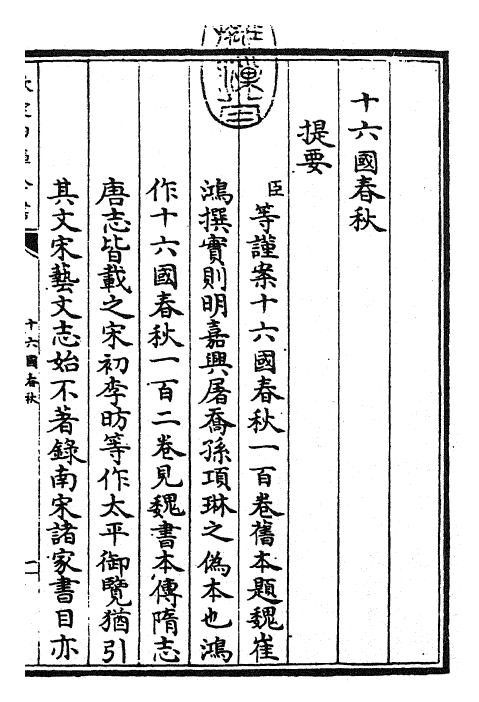 十六國春秋
提要
臣等謹案十六國春秋一百卷舊本題魏崔
鴻撰實則明嘉興屠喬孫項琳之偽本也鴻
作十六國春秋一百二卷見魏書本傳隋志
唐志皆載之宋初李昉等作太平御覽猶引
其文宋藝文志始不著錄南宋諸家書目亦
十六國春秋